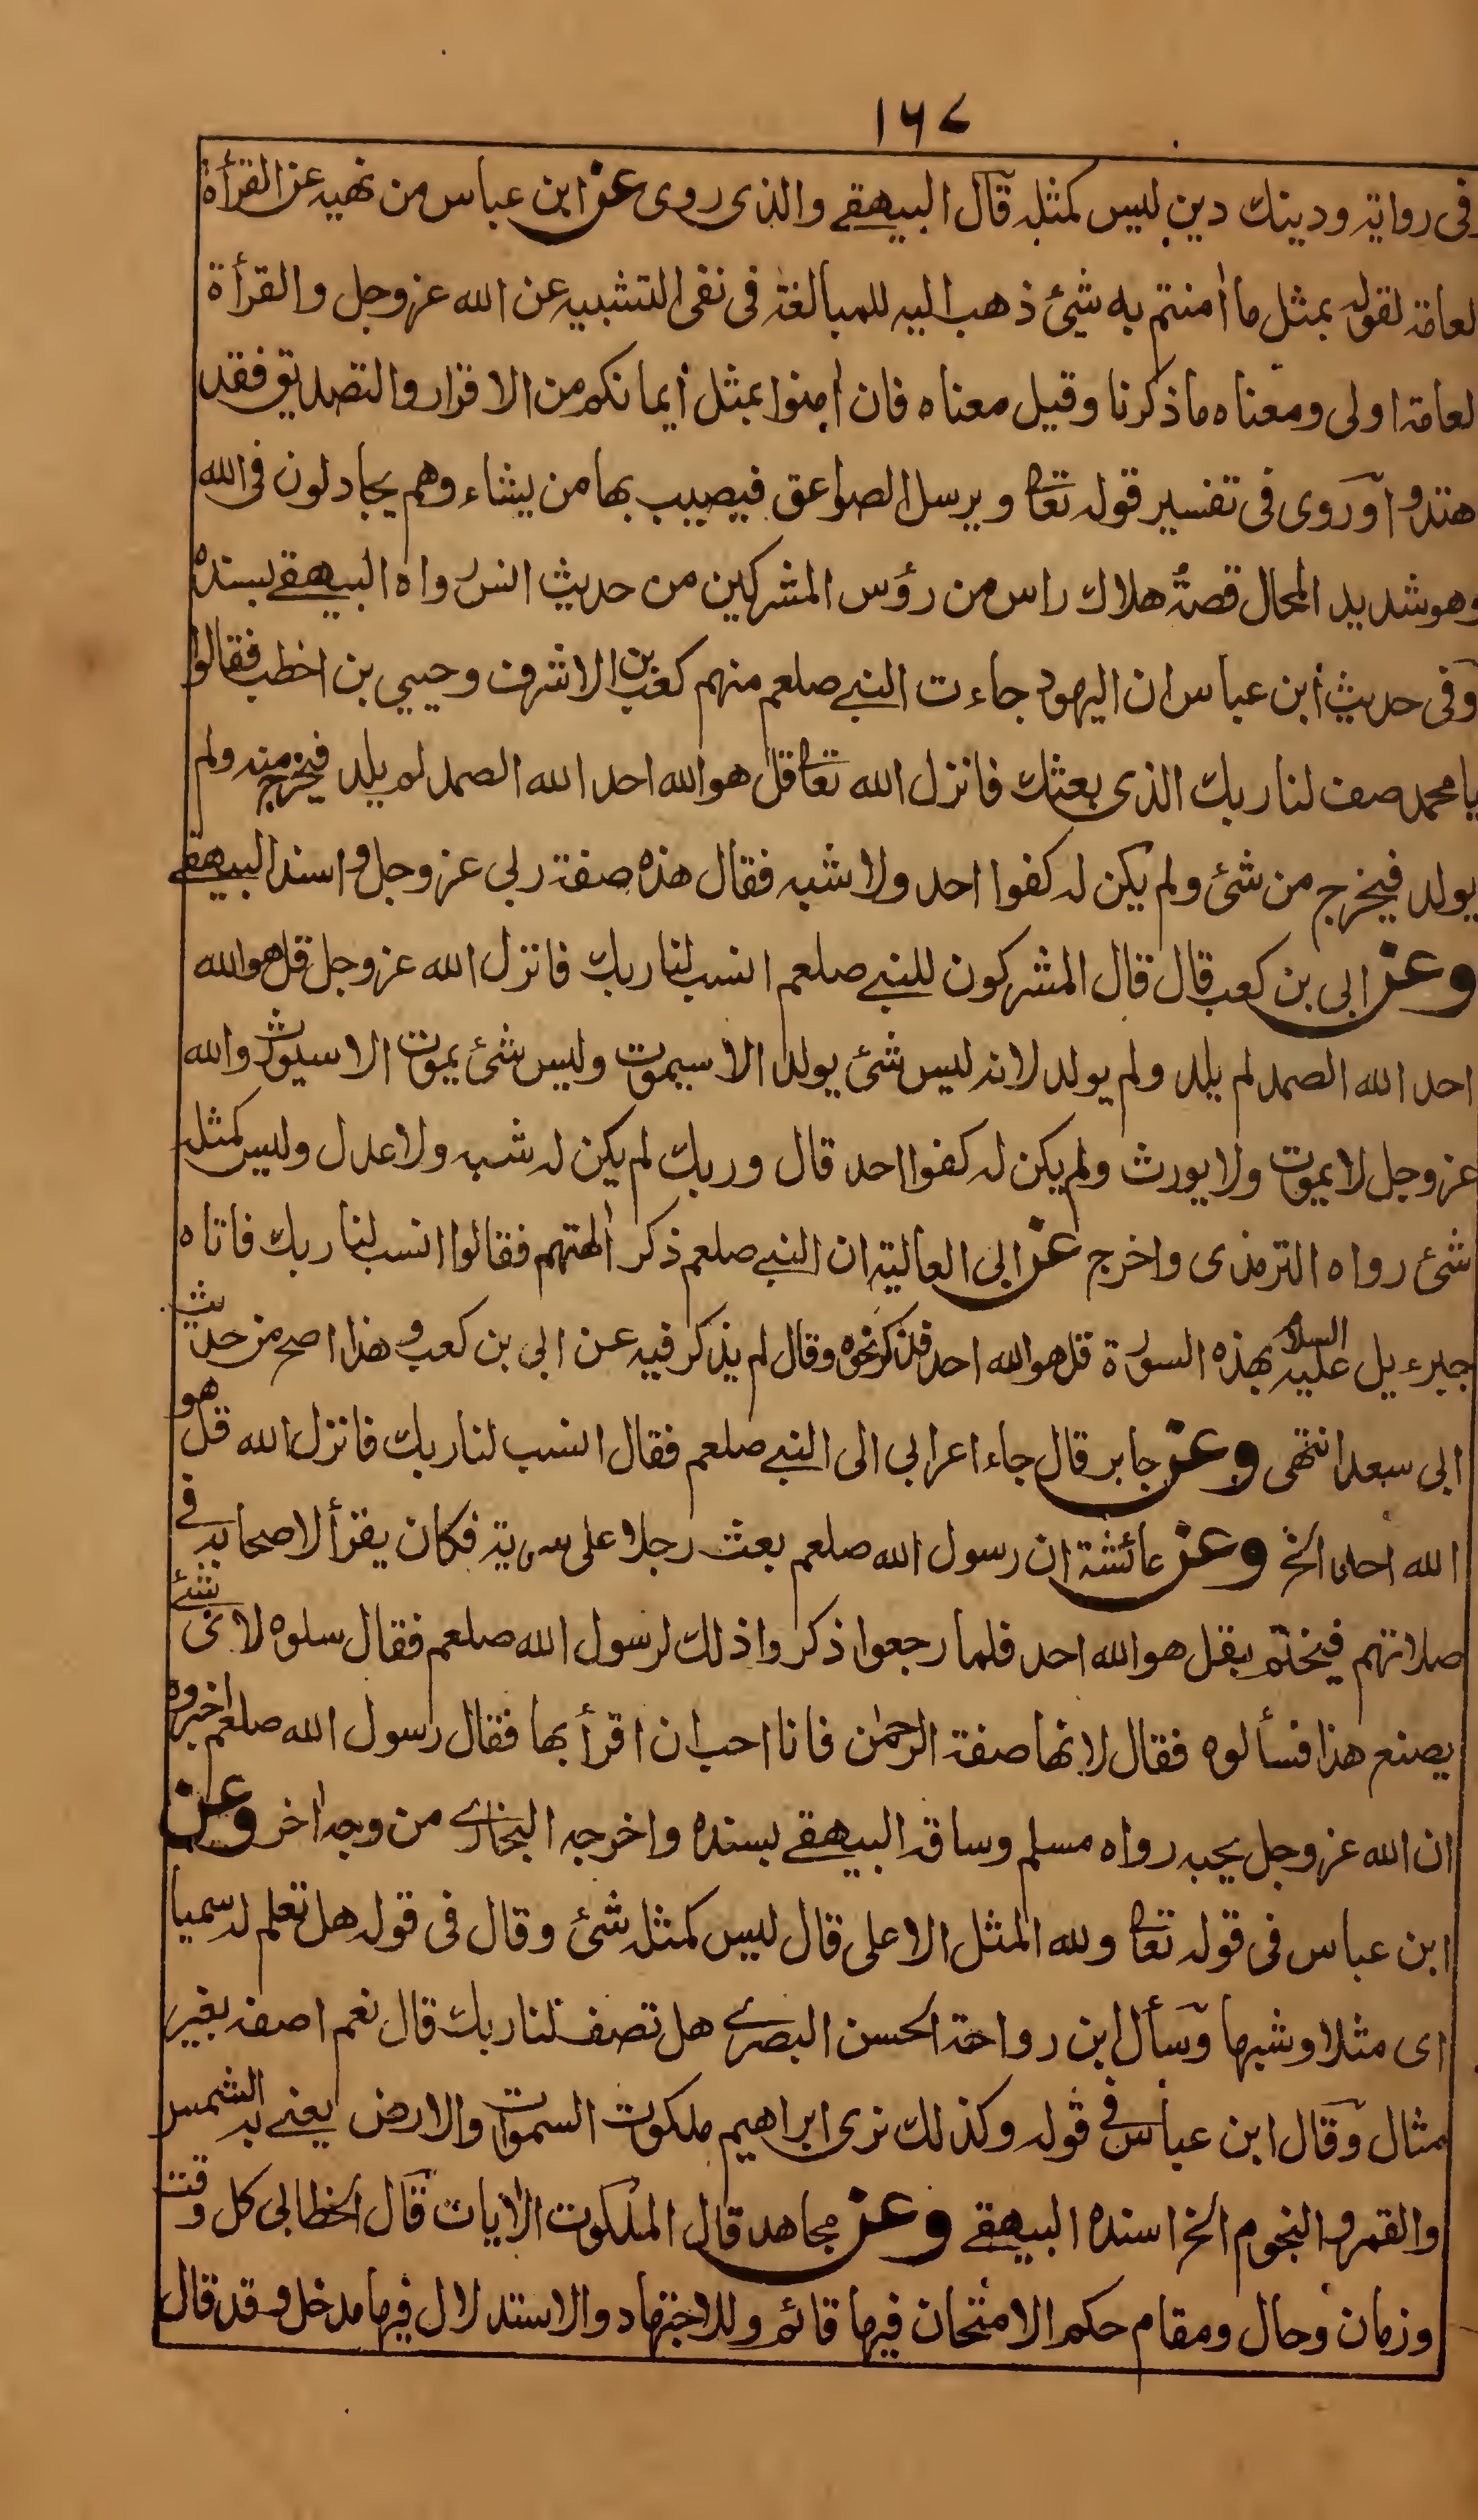 ١٦٧
وفى رواية ودينك دين ليس كمثله قال البيهقے والذى روى عن ابن عباس من نهيه عن القرأة
لعامة لقوله بمثل ما اٰمنتم به شيئ ذهب اليه للمبالغة فى نفى التشبيه عن الله عزوجل والقرأة
لعامة اولى ومعناه ما ذكرنا وقيل معناه فان اٰمنوا بمثل ايمانكم من الاقرار والتصديق فقد
هتدوا وروى فى تفسير قوله تعالى ويرسل الصواعق فيصيب بها من يشاء وهم يجادلون فى الله
وهو شديد المحال قصة هلاك راس من رؤس المشركين من حديث انس رواه البيهقے بسنده
وفى حديث ابن عباس ان اليهود جاءت النبے صلعم منهم كعب بن الاشرف وحيي بن اخطب فقالوا
يا محمد صف لنا ربك الذى بعثك فانزل الله تعالى قل هوالله احد الله الصمد لم يلد فيخرج منه ولم
يولد فيخرج من شئ ولم يكن له كفوا احد ولا شبه فقال هذه صفة ربى عزوجل واسند البيهقے
وعن ابى بن كعب قال قال المشركون للنبے صلعم انسب لنا ربك فانزل الله عزوجل قل هوالله
احد الله الصمد لم يلد ولم يولد لانه ليس شئ يولد الا سيموت وليس شئ يموت الا سيورث والله
عزوجل لا يموت ولا يورث ولم يكن له كفوا احد قال وربك لم يكن له شبه ولا عدل وليس كمثله
شئ رواه الترمذى واخرج عن ابى العالية ان النبے صلعم ذكر اٰلهتهم فقالوا انسب لنا ربك فاتاه
جبرءيل عليه السلام بهذه السورة قل هوالله احد فذكر نحوه وقال لم يذكر فيه عن ابى بن كعب وهذا اصح من حديث
ابى سعد انتهى وعن جابر قال جاء اعرابى الى النبے صلعم فقال انسب لنا ربك فانزل الله قل هو
الله احد الخ وعن عائشة ان رسول الله صلعم بعث رجلا على سرية فكان يقرأ لاصحابه فى
صلاتهم فيختم بقل هوالله احد فلما رجعوا ذكروا ذلك لرسول الله صلعم فقال سلوه لاى شئے
يصنع هذا فسألوه فقال لانها صفة الرحمٰن فانا احب ان اقرأ بها فقال رسول الله صلعم اخبروه
ان الله عزوجل يحبه رواه مسلم وساقه البيهقے بسنده واخرجه البخارے من وجه اٰخر وعن
ابن عباس فى قوله تعالى ولله المثل الاعلى قال ليس كمثله شئ وقال فى قوله هل تعلم له سميا
اى مثلا وشبها وسأل ابن رواحة الحسن البصرے هل تصف لنا ربك قال نعم اصفه بغير
مثال وقال ابن عباس فى قوله وكذلك نرى ابراهيم ملكوت السموات والارض يعنے به الشمس
والقمر والنجوم الخ اسنده البيهقے وعن مجاهد قال الملكوت الاٰيات قال الخطابى كل وقت
وزمان وحال ومقام حكم الامتحان فيها قائم وللاجتهاد والاستدلال فيها مدخل وقد قال